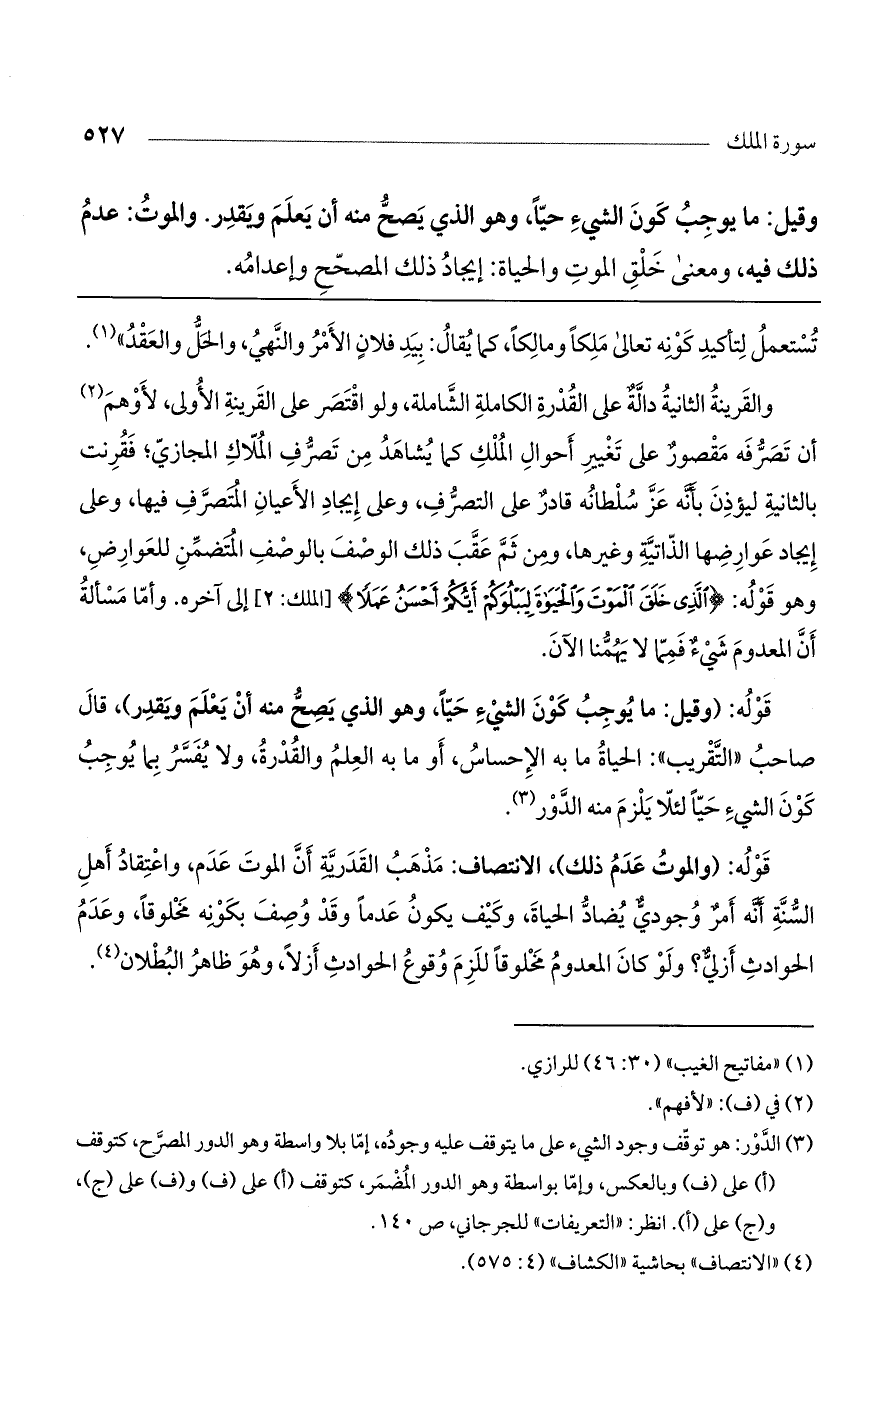 سورة الملك ٥٢٧
وقيل: ما يوجِبُ كَونَ الشيءِ حيّاً، وهو الذي يَصحُّ منه أن يَعلَمَ ويَقدِر. والموتُ: عدمُ
ذلك فيه، ومعنىٰ خَلْقِ الموتِ والحياة: إيجادُ ذلك المصحّحِ وإعدامُه.
تُسْتعملُ لِتأكيدِ كَوْنِه تعالىٰ مَلِكاً ومالِكاً، كما يُقالُ: بِيَدِ فلانٍ الأَمْرُ والنَّهيُ، والحَلُّ والعَقْدُ»(١).
والقَرينةُ الثانيةُ دالَّةٌ على القُدْرةِ الكاملةِ الشَّاملة، ولو اقْتَصَر على القَرينةِ الأُولى، لأَوْهمَ(٢)
أن تَصَرُّفَه مَقْصورٌ على تَغْييرِ أحوالِ المُلْكِ كما يُشاهَدُ مِن تَصرُّفِ المُلّاكِ المجازيّ؛ فَقُرِنت
بالثانيةِ ليؤذِنَ بأنَّه عَزَّ سُلْطانُه قادرٌ على التصرُّفِ، وعلى إيجادِ الأعيانِ المُتَصرَّفِ فيها، وعلى
إيجاد عَوارِضِها الذّاتيَّةِ وغيرها، ومِن ثَمَّ عَقَّبَ ذلك الوصْفَ بالوصْفِ المُتَضمِّنِ للعَوارِضِ،
وهو قَوْلُه: ﴿ٱلَّذِى خَلَقَ ٱلْمَوْتَ وَٱلْحَيَوٰةَ لِيَبْلُوَكُمْ أَيُّكُمْ أَحْسَنُ عَمَلًا﴾ [الملك: ٢] إلى آخره. وأمّا مَسْألةُ
أنَّ المعدومَ شَيْءٌ فَمِمّا لا يَهُمُّنا الآنَ.
قَوْلُه: (وقيل: ما يُوجِبُ كَوْنَ الشيْءِ حَيّاً، وهو الذي يَصِحُّ منه أنْ يَعْلَمَ ويَقدِر)، قالَ
صاحبُ «التَّقْريب»: الحياةُ ما به الإحساسُ، أو ما به العِلمُ والقُدْرةُ، ولا يُفَسَّرُ بما يُوجِبُ
كَوْنَ الشيءِ حَيّاً لئلّا يَلْزمَ منه الدَّوْر(٣).
قَوْلُه: (والموتُ عَدَمُ ذلك)، الانتصاف: مَذْهَبُ القَدَريَّةِ أنَّ الموتَ عَدَم، واعْتِقادُ أهلِ
السُّنَّةِ أنَّه أمرٌ وُجوديٌّ يُضادُّ الحياةَ، وكَيْف يكونُ عَدماً وقَدْ وُصِفَ بكَوْنِه مَخْلوقاً، وعَدَمُ
الحوادثِ أزليٌّ؟ ولَوْ كانَ المعدومُ مَخْلوقاً للَزِمَ وُقوعُ الحوادثِ أزلاً، وهُوَ ظاهرُ البُطْلان(٤).
(١) «مفاتيح الغيب» (٣٠: ٤٦) للرازي.
(٢) في (ف): «لأفهم».
(٣) الدَّوْر: هو توقّف وجود الشيء على ما يتوقف عليه وجودُه، إمّا بلا واسطة وهو الدور المصرَّح، كتوقف
(أ) على (ف) وبالعكس، وإمّا بواسطة وهو الدور المُضْمَر، كتوقف (أ) على (ف) و(ف) على (ج)،
و(ج) على (أ). انظر: «التعريفات» للجرجاني، ص ١٤٠.
(٤) «الانتصاف» بحاشية «الكشاف» (٤: ٥٧٥).